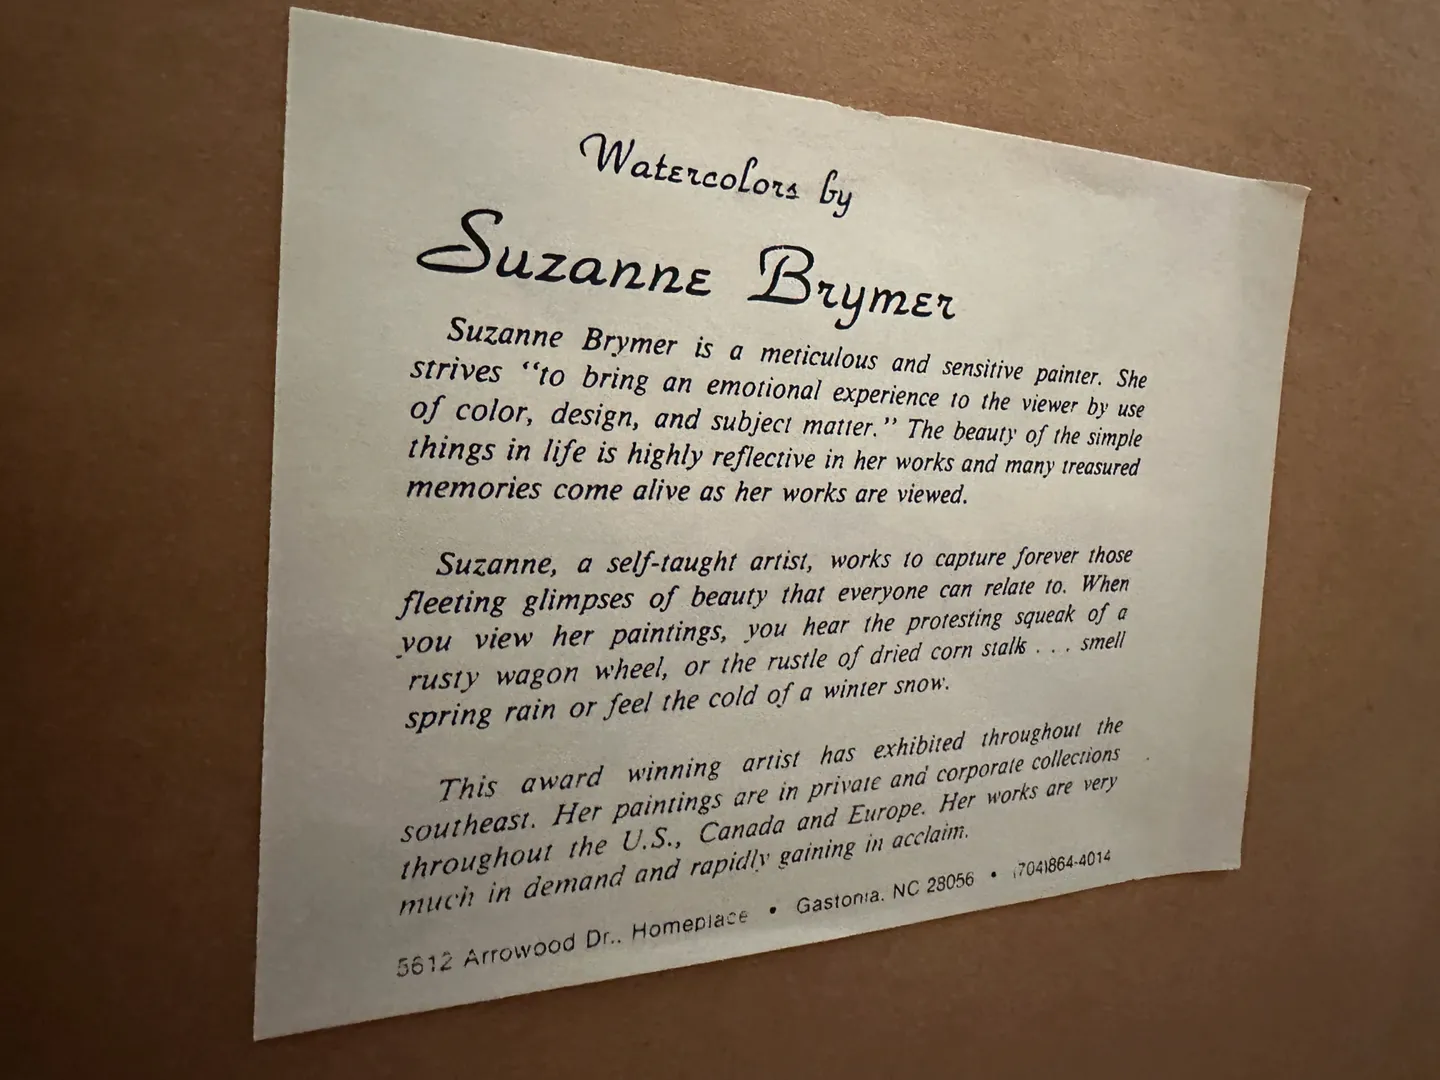 Watercolors by
Suzanne Brymer
Suzanne Brymer is a meticulous and sensitive painter. She
strives “to bring an emotional experience to the viewer by use
of color, design, and subject matter.” The beauty of the simple
things in life is highly reflective in her works and many treasured
memories come alive as her works are viewed.
Suzanne, a self-taught artist, works to capture forever those
fleeting glimpses of beauty that everyone can relate to. When
you view her paintings, you hear the protesting squeak of a
rusty wagon wheel, or the rustle of dried corn stalks . . . smell
spring rain or feel the cold of a winter snow.
This award winning artist has exhibited throughout the
southeast. Her paintings are in private and corporate collections
throughout the U.S., Canada and Europe. Her works are very
much in demand and rapidly gaining in acclaim.
5612 Arrowood Dr., Homeplace • Gastonia, NC 28056 • (704)864-4014